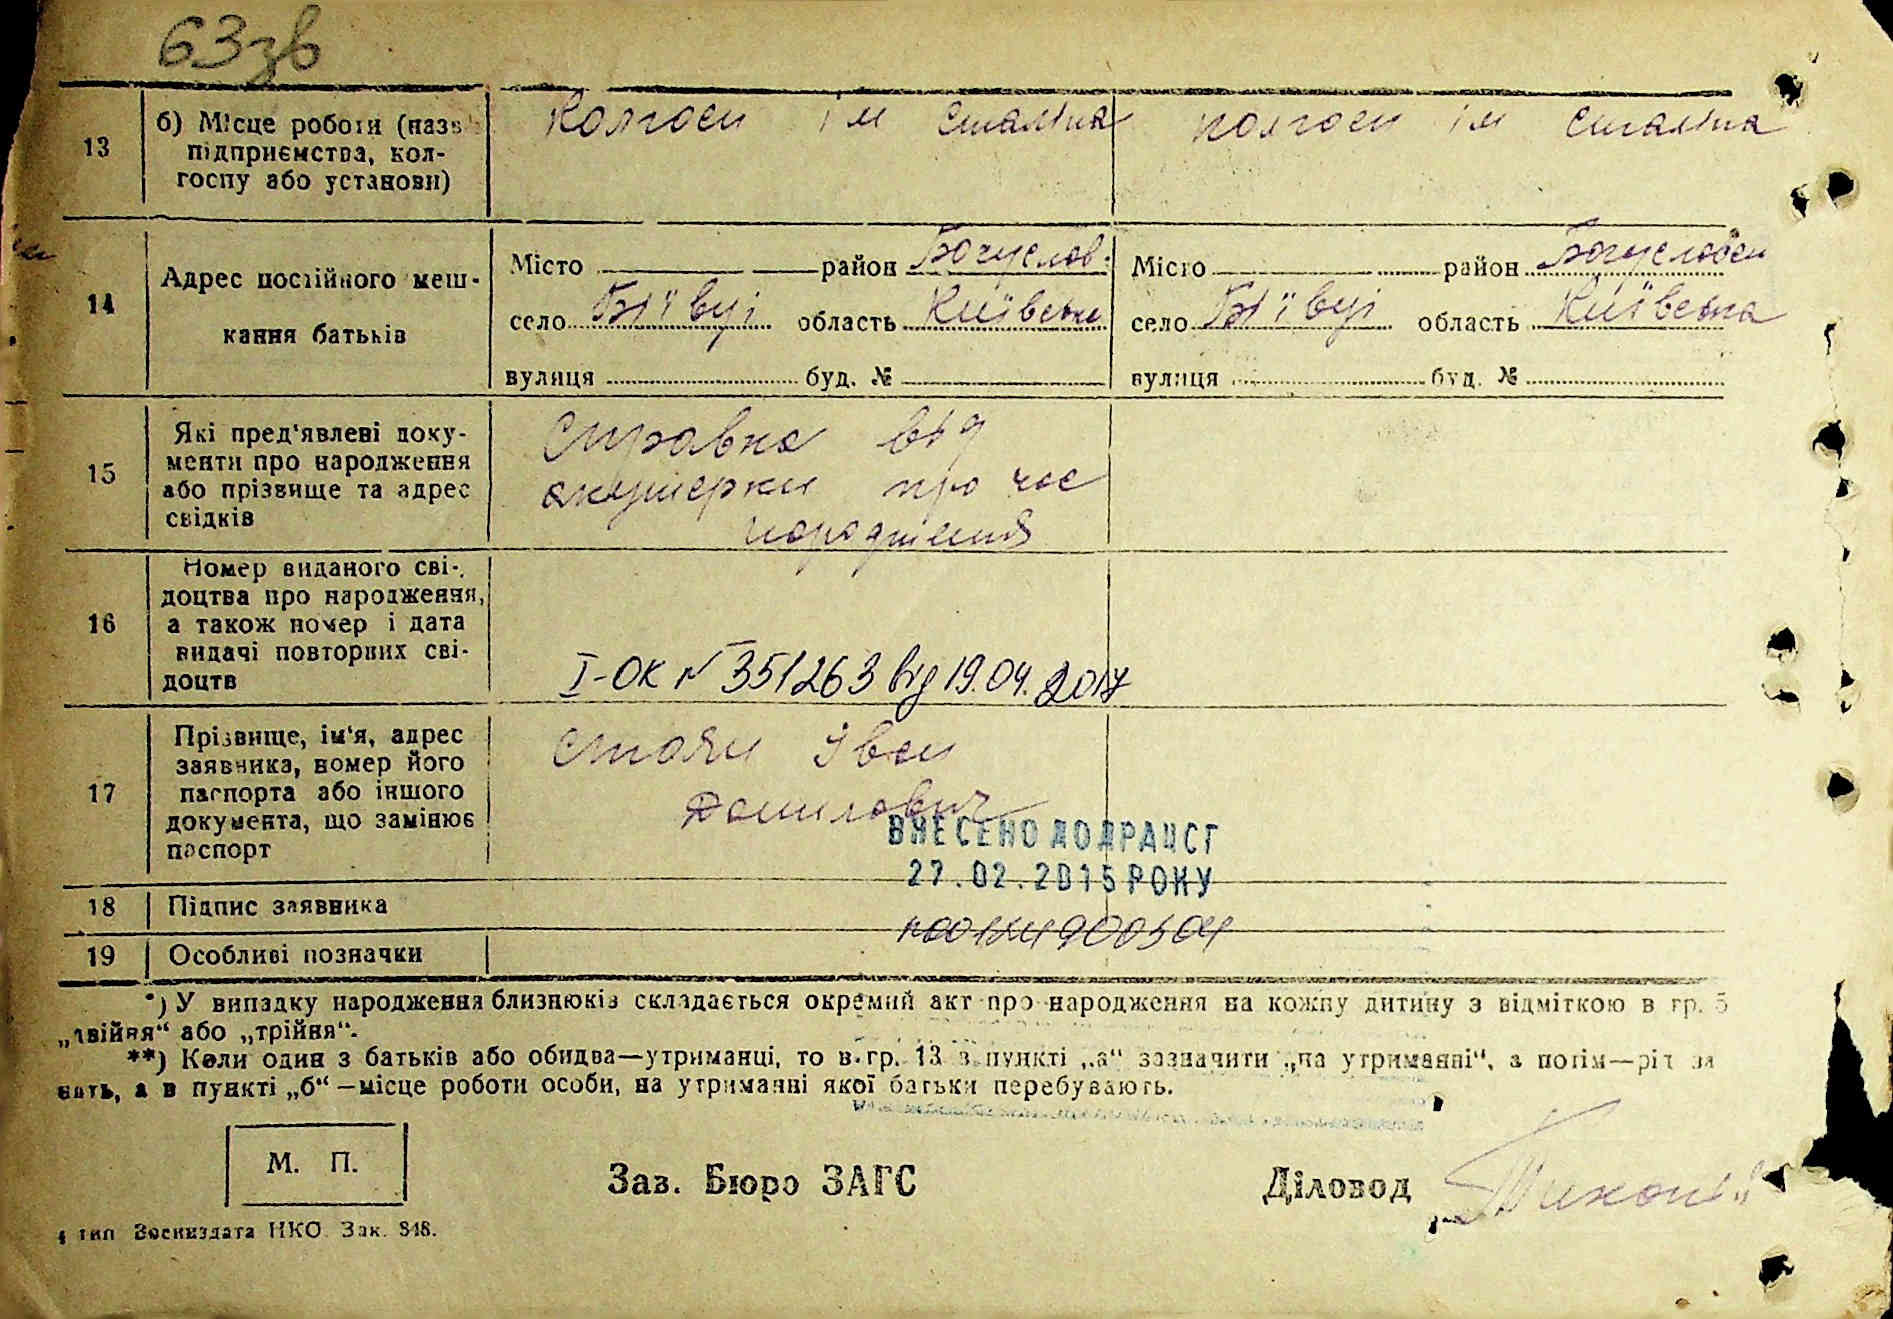 63зв
13
б) Місце роботи (назва
підприємства, кол-
госпу або установи)
колгосп ім Сталіна
колгосп ім Сталіна
14
Адрес постійного меш-
кання батьків
Місто район Богуслав.
село Бıївці область Київська
вулиця буд. №
Місто район Богуславськ
село Бıївці область Київська
вулиця буд. №
15
Які пред'явлені доку-
менти про народження
або прізвище та адрес
свідків
Справка від
акушерки про час
народження
16
Номер виданого сві-
доцтва про народження,
а також номер і дата
видачі повторних сві-
доцтв
I-ОК № 351263 від 19.04.2017
17
Прізвище, ім'я, адрес
заявника, номер його
паспорта або іншого
документа, що замінює
паспорт
Стоян Іван
Данилович
ВНЕСЕНО ДО ДРАЦСГ
27.02.2015 РОКУ
18
Підпис заявника
19
Особливі позначки
*) У випадку народження близнюків складається окремий акт про народження на кожну дитину з відміткою в гр. 5
„двійня“ або „трійня“.
**) Коли один з батьків або обидва—утриманці, то в гр. 13 в пункті „а“ зазначити „на утриманні“, а потім—рід за
нять, а в пункті „б“—місце роботи особи, на утриманні якої батьки перебувають.
М. П.
Зав. Бюро ЗАГС
Діловод
4 тип Воениздата НКО. Зак. 848.